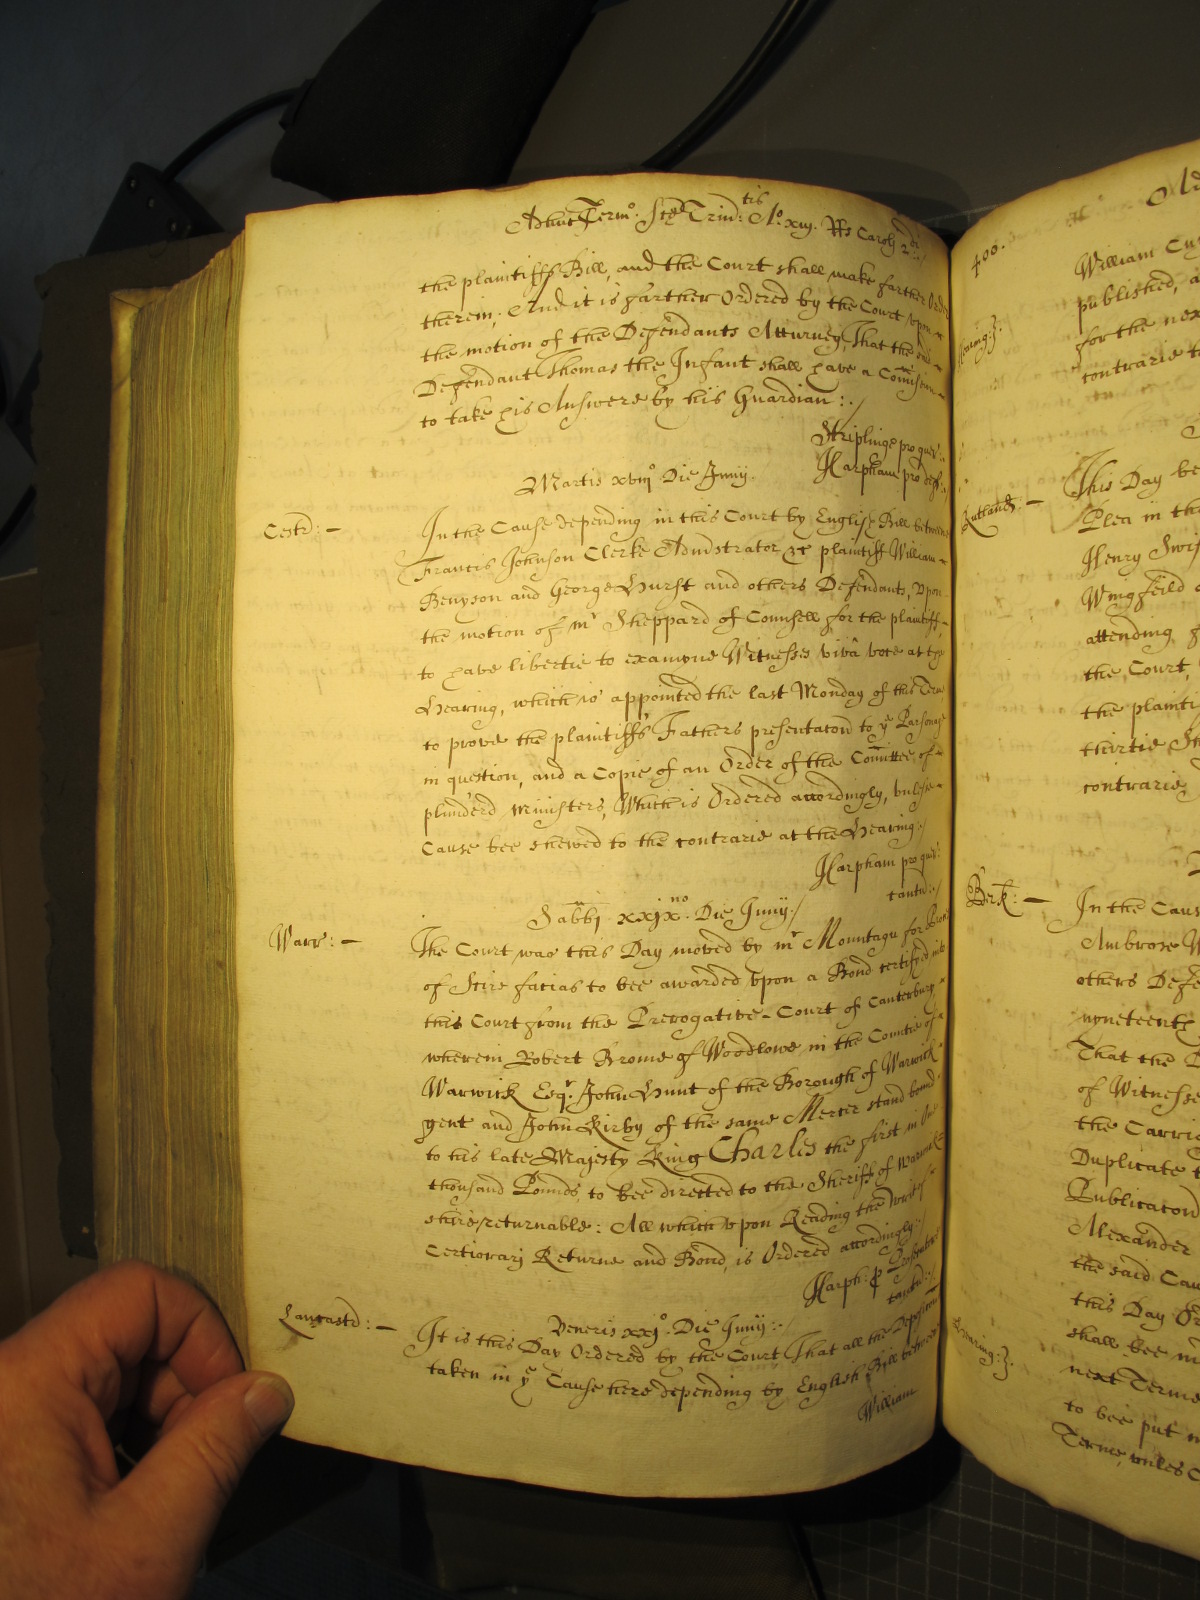 Adhuc Termo: Ste Trin:tis Ao xiij. Rs Caroli 2di:/
the plaintiffs Bill, and the Court shall make farther Order
therein; And it is farther Ordered by the Court vpon
the motion of the Defendants Atturney, That the said
Defendant Thomas the Infant shall have a Comission
to take his Answere by his Guardian:./
Striplinge pro quer:
Harpham pro def:
Martis xviijo Die Junij.
Cestr: —
In the Cause depending in this Court by English Bill betweene
Francis Johnson Clerke Administrator &c plaintiff William
Benyson and George Hurst and others Defendants, Vpon
the motion of mr Sheppard of Counsell for the plaintiff
to have libertie to examyne Witnesses vivâ voce at the
Hearing, which is appointed the last Monday of this Terme
to prove the plaintiffs Fathers presentacon to ye Parsonage
in question, and a Copie of an Order of the Comittee of
plunderd Ministers, Which is Ordered accordingly, vnlesse
Cause bee shewed to the contrarie at the Hearing:/
Harpham pro quer:
tantu:/
Sabbi xxijno. Die Junij:/
Warr: —
The Court was this Day moved by mr Mountagu for
of Scire facias to bee awarded vpon a Bond certifyed into
this Court from the Prerogative-Court of Canterbury
wherein Robert Brome of Woodlowe in the Countie of
Warwick Esqr. John Hunt of the Borough of Warwick
gent and John Kirby of the same Mercer stand bound
to his late Majesty King Charles the first in One
thousand Pounds, to bee directed to the Sheriff of Warwick-
shire returnable: All which vpon Reading the writ of
Certiorarj Returne and Bond, is Ordered accordingly:/
Harph: p
tantu:/
Lancastr: —
Veneris xxjo. Die Junij:.
It is this Day Ordered by the Court That all the Deposicons
taken in ye Cause here depending by English Bill betweene
William
400.
William
published, a
for the nex
contrarie to
Rutland: —
This Day be
Plea in th
Henry Swi
Wingfeild
attending
the Court,
the plainti
thirtie
contrarie
Berk: —
In the Caus
Ambrose W
others Defe
nyneteenth
That the D
of Witnesse
the Carria
Duplicate t
Publicacon
Alexander
the said Cau
this Day Or
Hearing:}
shall bee
next Terme
to bee put
Terme, vnles C